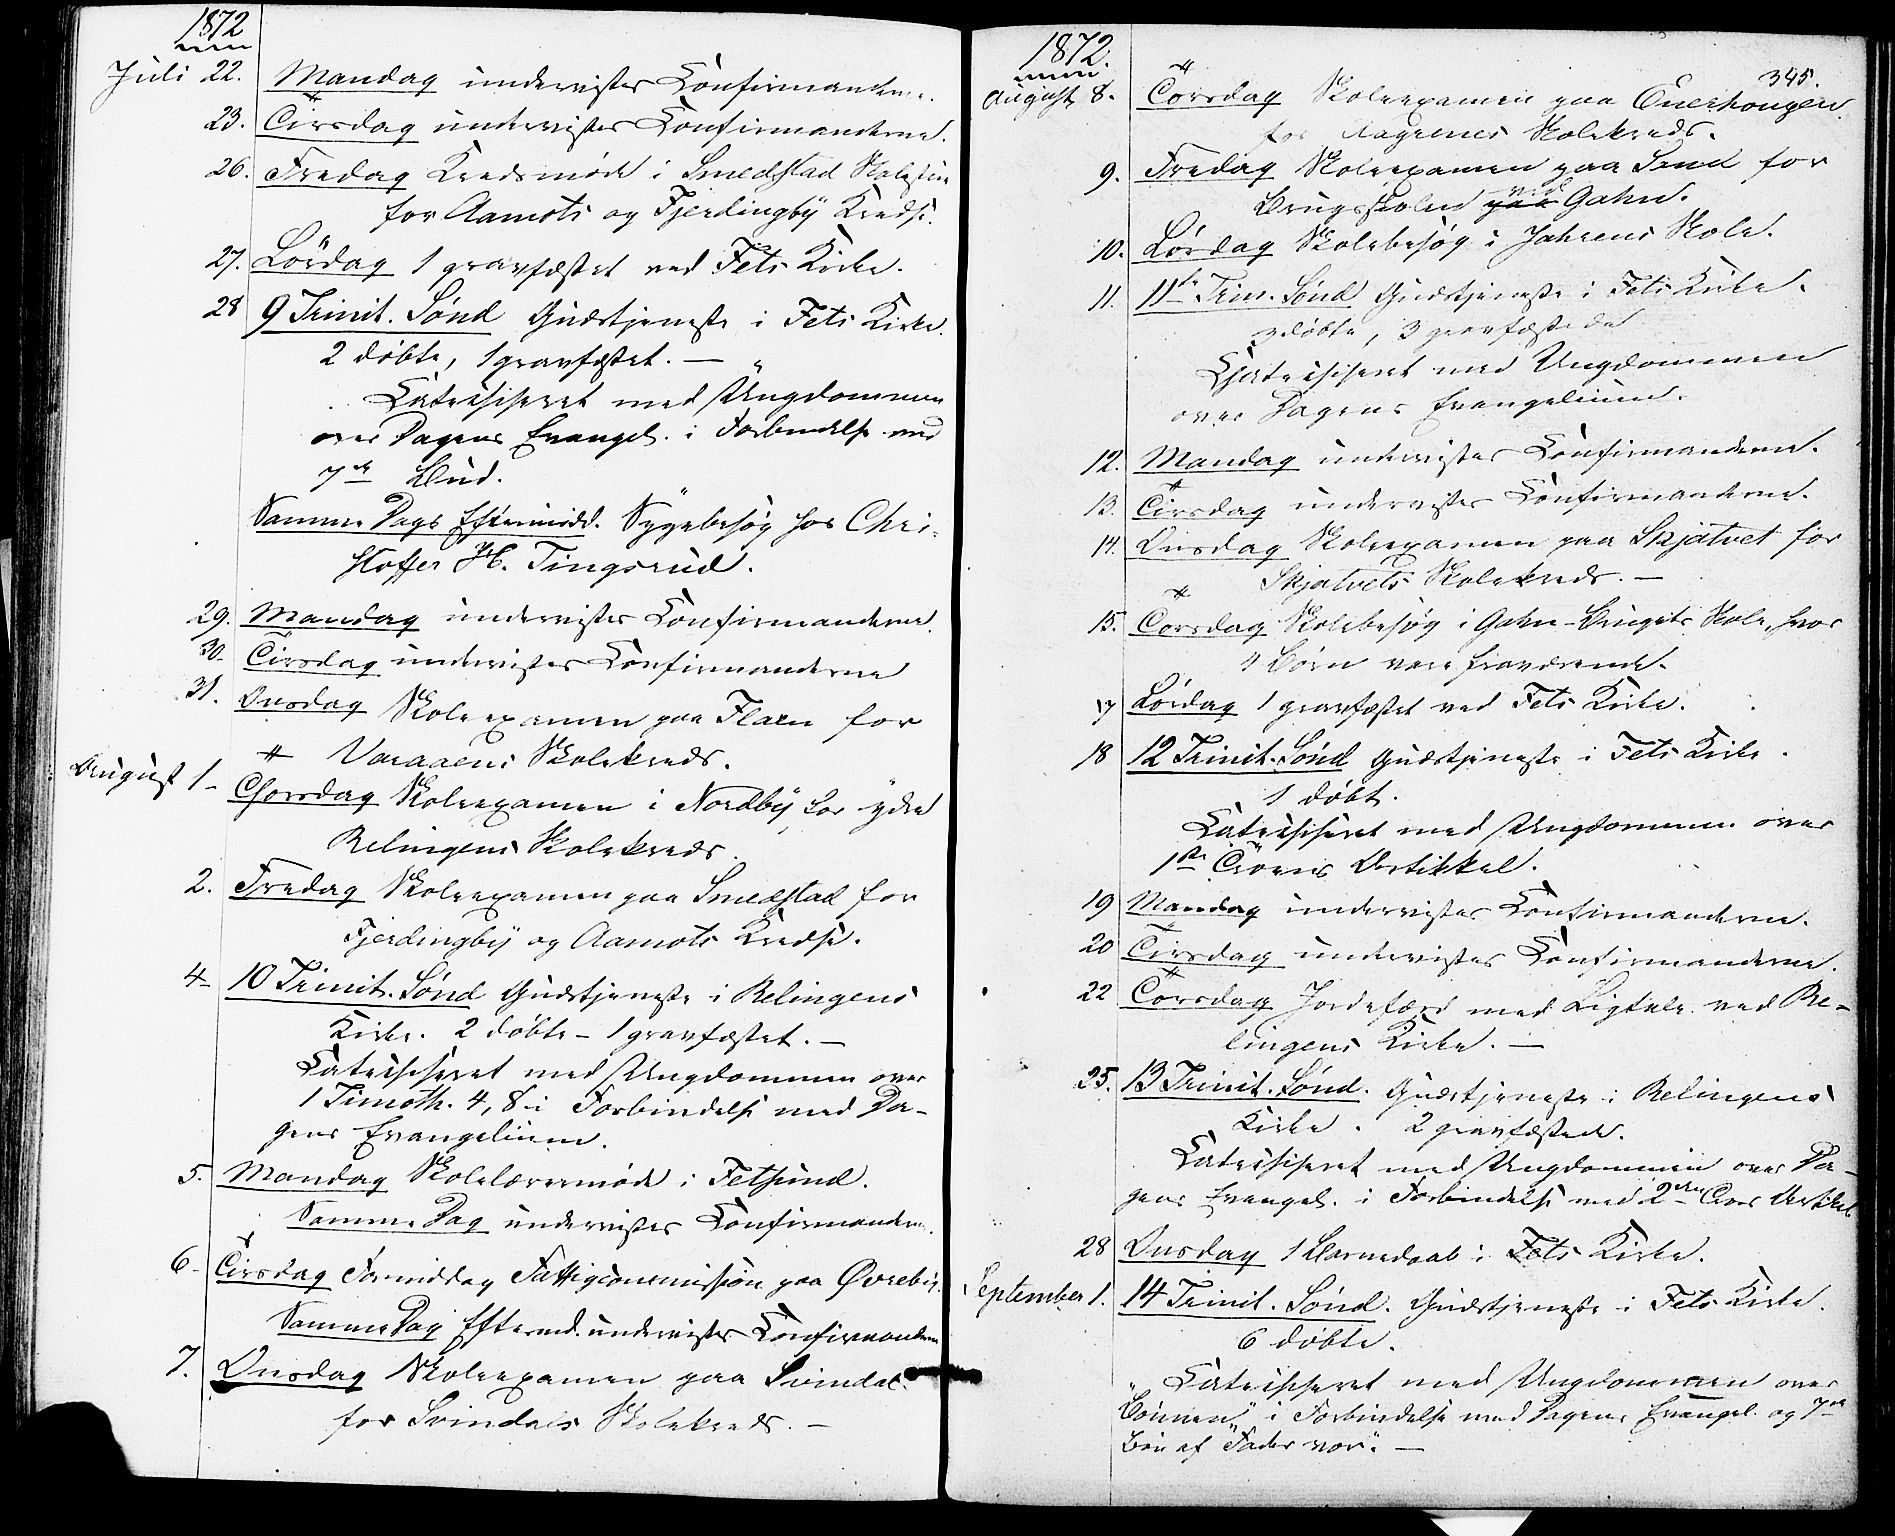 1872
Juli 22. Mandag undervistes Confirmanderne.
23. Tirsdag undervistes Confirmanderne.
26. Fredag Kredsmøde i Smedstad Skolestue
for Aamots og Fjerdingby Kredse.
27. Lördag 1 gravfæstet ved Fets Kirke.
28 9 Trinit. Sønd Gudstjeneste i Fets Kirke.
2 døbte, 1 gravfæstet. —
Catechiseret med Ungdommen
over Dagens Evangel. i Forbindelse med
7de Bud.
Samme Dags Eftermidd. Sygebesøg hos Chri-
stoffer H. Tingsrud.
29. Mandag undervistes Confirmanderne.
30. Tirsdag undervistes Confirmanderne
31. Onsdag Skoleexamen paa Flaen for
Varaaens Skolekreds.
August 1. Thorsdag Skoleexamen i Nordby for ydre
Relingens Skolekreds.
2. Fredag Skoleexamen paa Smedstad for
Fjerdingby og Aamots Kredse.
4 10 Trinit. Sønd Gudstjeneste i Relingens
Kirke. 2 døbte – 1 gravfæstet. —
Catechiseret med Ungdommen over
1 Timoth. 4, 8 i Forbindelse med Da-
gens Evangelium.
5. Mandag Skolelærermøde i Fetsund.
Samme Dag undervistes Confirmanderne.
6. Tirsdag Formiddag Fattigcommission paa Øvreby.
Samme Dag Eftermd. undervistes Confirmanderne
7. Onsdag Skoleexamen paa Svindal
for Svindals Skolekreds. —
1872.
345.
August 8. Torsdag Skoleexamen paa
for Skolekreds.
9. Fredag Skoleexamen paa Sund for
Brugsskolen paa ved Gahn.
10. Lørdag Skolebesøg i Jahrens Skole.
11. 11te Trin. Sønd Gudstjeneste i Fets Kirke.
3 døbte, 3 gravfæstede
Chatechiseret med Ungdommen
over Dagens Evangelium.
12. Mandag undervistes Confirmanderne.
13. Tirsdag undervistes Confirmanderne.
14. Onsdag Skoleexamen paa Skjatvet for
Skjatvets Skolekreds. —
15. Torsdag Skolebesøg i Gahn-Brugets Skole, hvor
4 Börn vare fraværende.
17 Lördag 1 gravfæstet ved Fets Kirke.
18 12 Trinit. Sønd Gudstjeneste i Fets Kirke.
1 døbt.
Catechiseret med Ungdommen over
1ste Troens Artikkel.
19 Mandag undervistes Confirmanderne.
20 Tirsdag undervistes Confirmanderne.
22 Torsdag Jordefærd med Ligtale ved Re-
lingens Kirke. —
25. 13 Trinit. Sønd. Gudstjeneste i Relingens
Kirke. 2 gravfæstede.
Catechiseret med Ungdommen over Da-
gens Evangel. i Forbindelse med 2den Troes Artikel
28 Onsdag 1 Barnedaab i Fets Kirke.
September 1. 14 Trinit. Sønd. Gudstjeneste i Fets Kirke.
6 døbte.
Catechiseret med Ungdommen over
"Bønnen" i Forbindelse med Dagens Evangel. og 7de
Bøn af "Fader vor". —